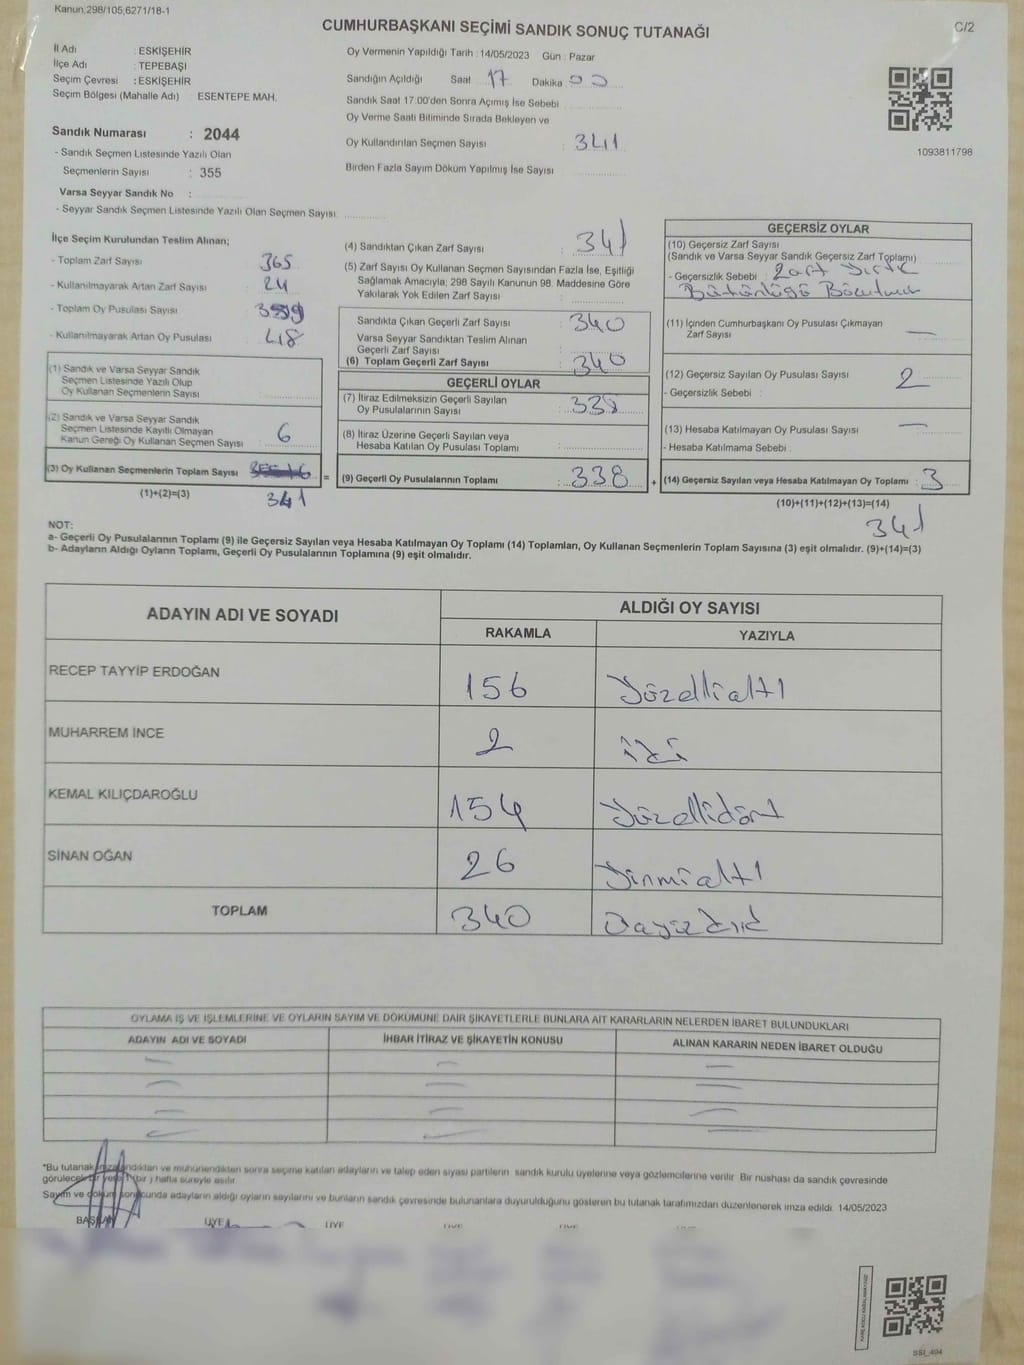 Kanun,298/105,6271/18-1
CUMHURBAŞKANI SEÇİMİ SANDIK SONUÇ TUTANAĞI
C/2
İl Adı : ESKİŞEHİR
İlçe Adı : TEPEBAŞI
Seçim Çevresi : ESKİŞEHİR
Seçim Bölgesi (Mahalle Adı) ESENTEPE MAH.
Sandık Numarası : 2044
- Sandık Seçmen Listesinde Yazılı Olan
Seçmenlerin Sayısı : 355
Varsa Seyyar Sandık No :
- Seyyar Sandık Seçmen Listesinde Yazılı Olan Seçmen Sayısı:
Oy Vermenin Yapıldığı Tarih : 14/05/2023 Gün : Pazar
Sandığın Açıldığı Saat 17 Dakika 00
Sandık Saat 17.00'den Sonra Açımış İse Sebebi
Oy Verme Saati Bitiminde Sırada Bekleyen ve
Oy Kullandırılan Seçmen Sayısı : 341
Birden Fazla Sayım Döküm Yapılmış İse Sayısı
1093811798
İlçe Seçim Kurulundan Teslim Alınan;
- Toplam Zarf Sayısı 365
- Kullanılmayarak Artan Zarf Sayısı 24
- Toplam Oy Pusulası Sayısı
- Kullanılmayarak Artan Oy Pusulası 48
(1) Sandık ve Varsa Seyyar Sandık
Seçmen Listesinde Yazılı Olup
Oy Kullanan Seçmenlerin Sayısı
(2) Sandık ve Varsa Seyyar Sandık
Seçmen Listesinde Kayıtlı Olmayan
Kanun Gereği Oy Kullanan Seçmen Sayısı : 6
(3) Oy Kullanan Seçmenlerin Toplam Sayısı
(1)+(2)=(3) 341
(4) Sandıktan Çıkan Zarf Sayısı : 341
(5) Zarf Sayısı Oy Kullanan Seçmen Sayısından Fazla İse, Eşitliği
Sağlamak Amacıyla; 298 Sayılı Kanunun 98. Maddesine Göre
Yakılarak Yok Edilen Zarf Sayısı :
Sandıkta Çıkan Geçerli Zarf Sayısı : 340
Varsa Seyyar Sandıktan Teslim Alınan
Geçerli Zarf Sayısı :
(6) Toplam Geçerli Zarf Sayısı : 340
GEÇERLİ OYLAR
(7) İtiraz Edilmeksizin Geçerli Sayılan
Oy Pusulalarının Sayısı : 338
(8) İtiraz Üzerine Geçerli Sayılan veya
Hesaba Katılan Oy Pusulası Toplamı :
= (9) Geçerli Oy Pusulalarının Toplamı : 338 +
GEÇERSİZ OYLAR
(10) Geçersiz Zarf Sayısı
(Sandık ve Varsa Seyyar Sandık Geçersiz Zarf Toplamı)
- Geçersizlik Sebebi : Zarf Yırtık
Bütünlüğü Bozulmuş
(11) İçinden Cumhurbaşkanı Oy Pusulası Çıkmayan
Zarf Sayısı : —
(12) Geçersiz Sayılan Oy Pusulası Sayısı : 2
- Geçersizlik Sebebi :
(13) Hesaba Katılmayan Oy Pusulası Sayısı : —
- Hesaba Katılmama Sebebi :
(14) Geçersiz Sayılan veya Hesaba Katılmayan Oy Toplamı : 3
(10)+(11)+(12)+(13)=(14)
341
NOT:
a- Geçerli Oy Pusulalarının Toplamı (9) ile Geçersiz Sayılan veya Hesaba Katılmayan Oy Toplamı (14) Toplamları, Oy Kullanan Seçmenlerin Toplam Sayısına (3) eşit olmalıdır. (9)+(14)=(3)
b- Adayların Aldığı Oyların Toplamı, Geçerli Oy Pusulalarının Toplamına (9) eşit olmalıdır.
ADAYIN ADI VE SOYADI ALDIĞI OY SAYISI
RAKAMLA YAZIYLA
RECEP TAYYİP ERDOĞAN 156 Yüzellialtı
MUHARREM İNCE 2 iki
KEMAL KILIÇDAROĞLU 154 Yüzellidört
SİNAN OĞAN 26 Yirmialtı
TOPLAM 340
OYLAMA İŞ VE İŞLEMLERİNE VE OYLARIN SAYIM VE DÖKÜMÜNE DAİR ŞİKAYETLERLE BUNLARA AİT KARARLARIN NELERDEN İBARET BULUNDUKLARI
ADAYIN ADI VE SOYADI İHBAR İTİRAZ VE ŞİKAYETİN KONUSU ALINAN KARARIN NEDEN İBARET OLDUĞU
*Bu tutanak imzalandıktan ve mühürlendikten sonra seçime katılan adayların ve talep eden siyasi partilerin sandık kurulu üyelerine veya gözlemcilerine verilir. Bir nüshası da sandık çevresinde
görülecek bir yere 1 (bir) hafta süreyle asılır.
Sayım ve döküm sonucunda adayların aldığı oyların sayılarını ve bunların sandık çevresinde bulunanlara duyurulduğunu gösteren bu tutanak tarafımızdan düzenlenerek imza edildi. 14/05/2023
BAŞKAN ÜYE ÜYE ÜYE ÜYE ÜYE
SSI_494